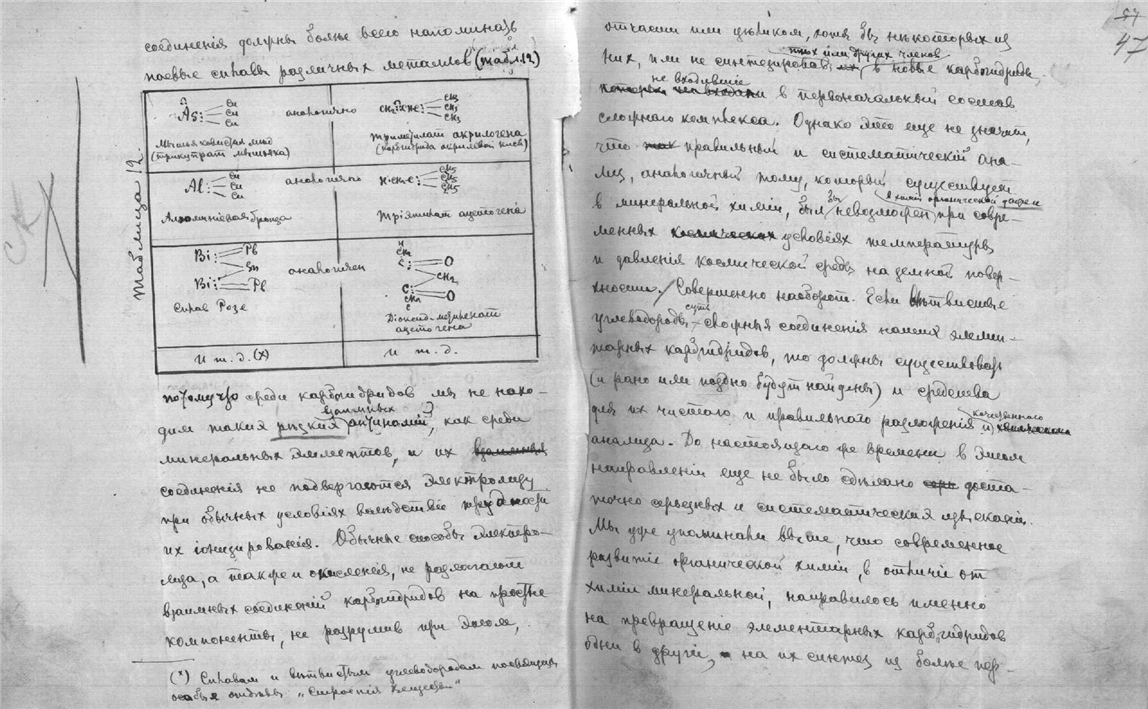 соединенія должны болѣе всего напоминать
паевые сплавы различныхъ металловъ (табл.12)
Таблица 12.
As Cu Cu Cu аналогично CH₂CHC CH₃ CH₃ CH₃
Мышьяковистая мѣдь Триметилат акрилогена
(трикупрат мышьяка) (карбгидрида акриловой кисл.)
Al Cu Cu Cu аналогичен H·CH₂C C₂H₅ C₂H₅ C₂H₅
Алюминіевая бронза Тріэтилат ацетогена
Bi Pb Sn Bi Pb аналогичен CH₃ C O CH₂ C O
Сплав Розе Діоксид-метиленат
ацетогена
и т. д. (х) и т. д.
потому что среди карбгидридов мы не нахо-
взаимных
дим таких рѣзких антиномій, как среди
минеральных элементов, и их
соединенія не подвергаются электролизу
при обычных условіях вслѣдствіе трудности
их іонизированія. Обычные способы электро-
лиза, а также и окисленія, не разлагают
взаимных соединеній карбгидридов на простые
компоненты, не разрушив при этом,
(х) Сплавам и вѣтвистым углеводородам посвящены
особые отдѣлы „Строенія Вещества“
47
отчасти или цѣликом, хотя бы нѣкоторых из
тѣх или других членов
них, или не синтезировав в новые карбгидриды,
не входившіе
в первоначальный состав
сложнаго комплекса. Однако это еще не значит,
что правильный и систематическій ана-
лиз, аналогичный тому, который существует
в химіи органической даже и
в минеральной химіи, был бы невозможен при совре-
менных условіях температуры
и давленія космической среды на земной повер-
хности. Совершенно наоборот. Если вѣтвистые
суть
углеводороды сложныя соединенія наших элемен-
тарных карбгидридов, то должны существовать
(и рано или поздно будут найдены) и средства
качественного
для их чистаго и правильнаго разложенія и
анализа. До настоящаго же времени в этом
направленіи еще не было сдѣлано доста-
точно серьезных и систематических изысканій.
Мы уже упоминали выше, что современное
развитіе органической химіи, в отличіе от
химіи минеральной, направилось именно
на превращеніе элементарных карбгидридов
одни в другіе, на их синтез из болѣе пер-